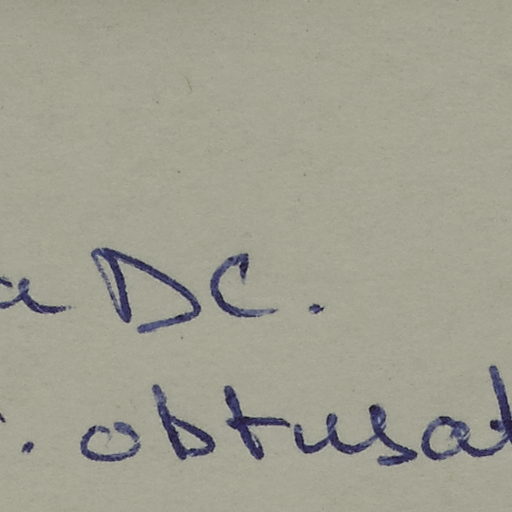 a DC.
. obtusat